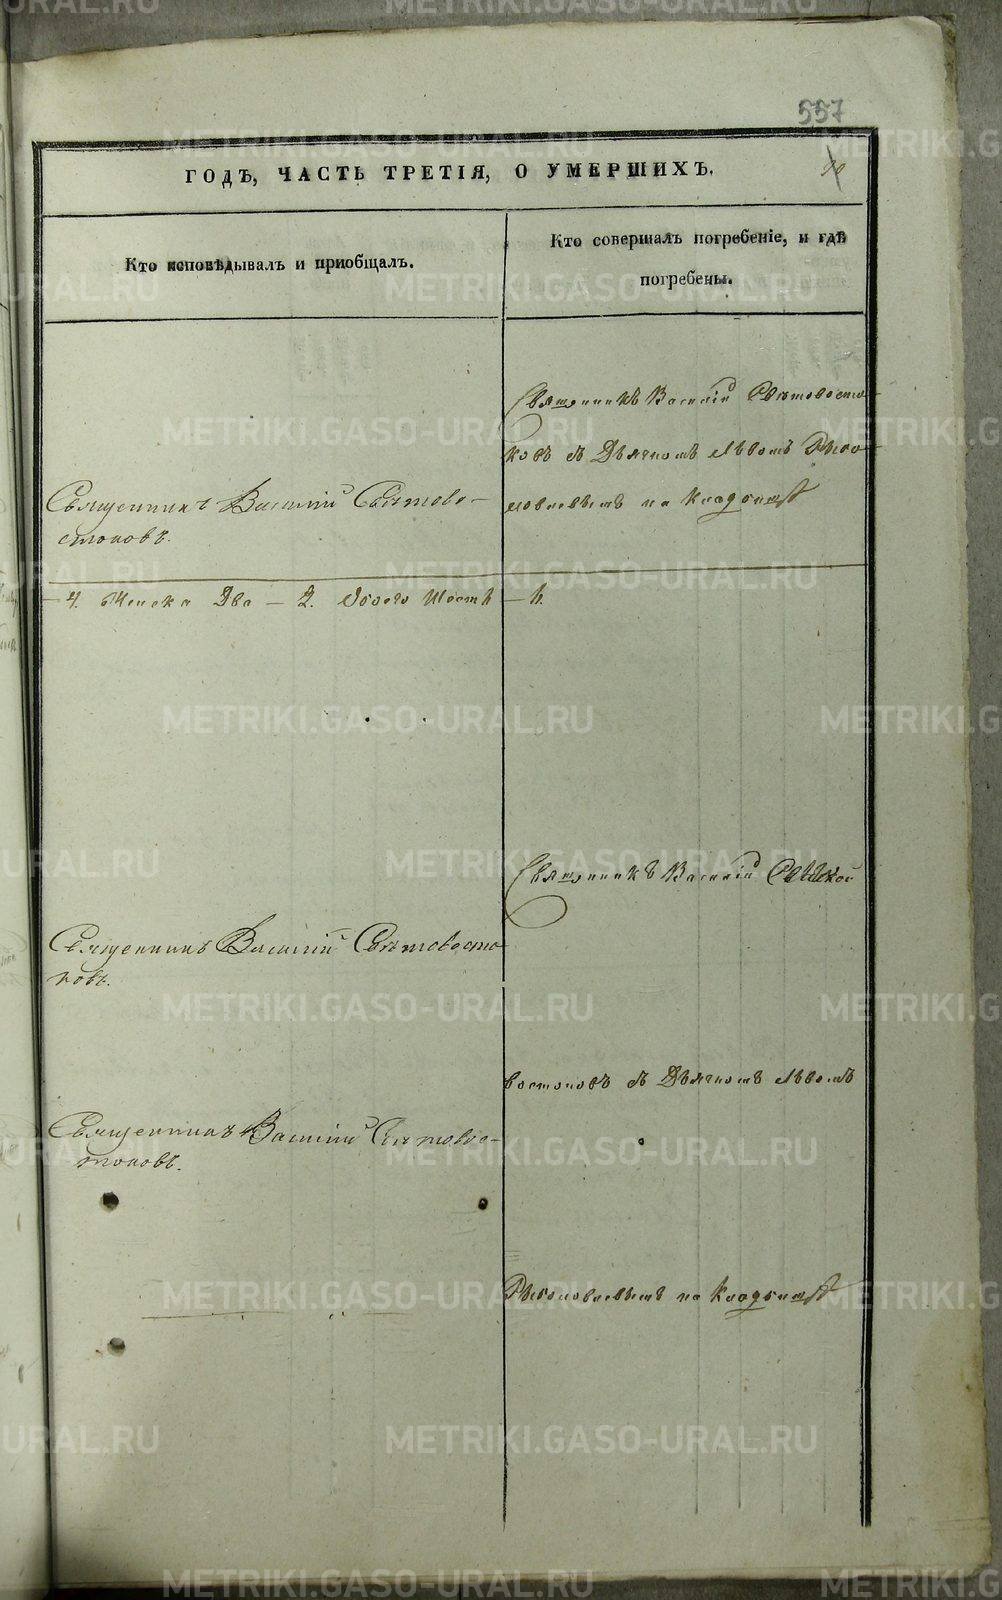 557
ГОДЪ, ЧАСТЬ ТРЕТІЯ, О УМЕРШИХЪ.
Кто исповѣдывалъ и приобщалъ.
Кто совершалъ погребеніе, и гдѣ
погребены.
Священникъ Василій Свѣтовосто-
ковъ съ Дьячкомъ Львомъ
на кладбищѣ
Священникъ Василій Свѣтово-
стоковъ.
— 4. Женска Два — 2. Обоего Шесть — 6.
Священникъ Василій
Священникъ Василій Свѣтовосто-
ковъ.
востоковъ съ Дьячкомъ Львомъ
Священникъ Василій Свѣтовос-
токовъ.
на кладбищѣ
METRIKI.GASO-URAL.RU